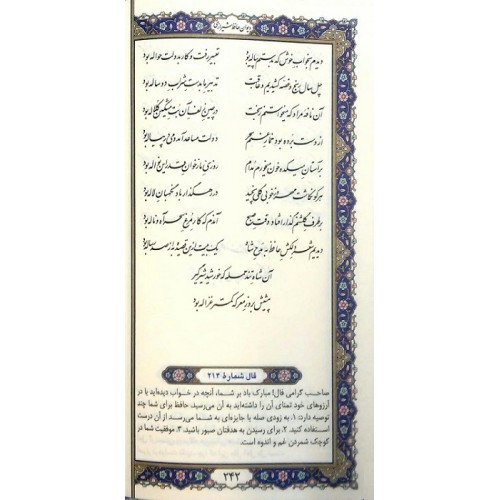 دیوان حافظ شیرازی
دیدم بخواب خوش که بدستم پیاله بود تعبیر رفت و کار بدولت حواله بود
چل سال رنج و غصه کشیدیم و عاقبت تدبیر ما بدست شراب دو ساله بود
آن نافهٔ مراد که میخواستم ز بخت در چین زلف آن بت مشکین کلاله بود
از دست برده بود خمار غمم سحر دولت مساعد آمد و می در پیاله بود
بر آستان میکده خون میخورم مدام روزی ما ز خوان قدر این نواله بود
هر کو نکاشت مهر و ز خوبی گلی نچید در رهگذار باد نگهبان لاله بود
بر طرف گلشنم گذر افتاد وقت صبح آندم که کار مرغ سحر آه و ناله بود
دیدیم شعر دلکش حافظ به مدح شاه یک بیت از این قصیده به از صد رساله بود
آن شاه تند حمله که خورشید شیرگیر
پیشش بروز معرکه کمتر غزاله بود
فال شمارهٔ ۲۱۴
صاحب گرامی فال! مبارک باد بر شما، آنچه در خواب دیده‌اید یا در
آرزوهای خود تمنای آن را داشته‌اید به آن می‌رسید. حافظ برای شما چند
توصیه دارد: ۱. به زودی صله یا جایزه‌ای به شما می‌رسد از آن درست
استفاده کنید. ۲. برای رسیدن به هدفتان صبور باشید. ۳. موفقیت شما در
کوچک شمردن غم و اندوه است.
۲۴۲